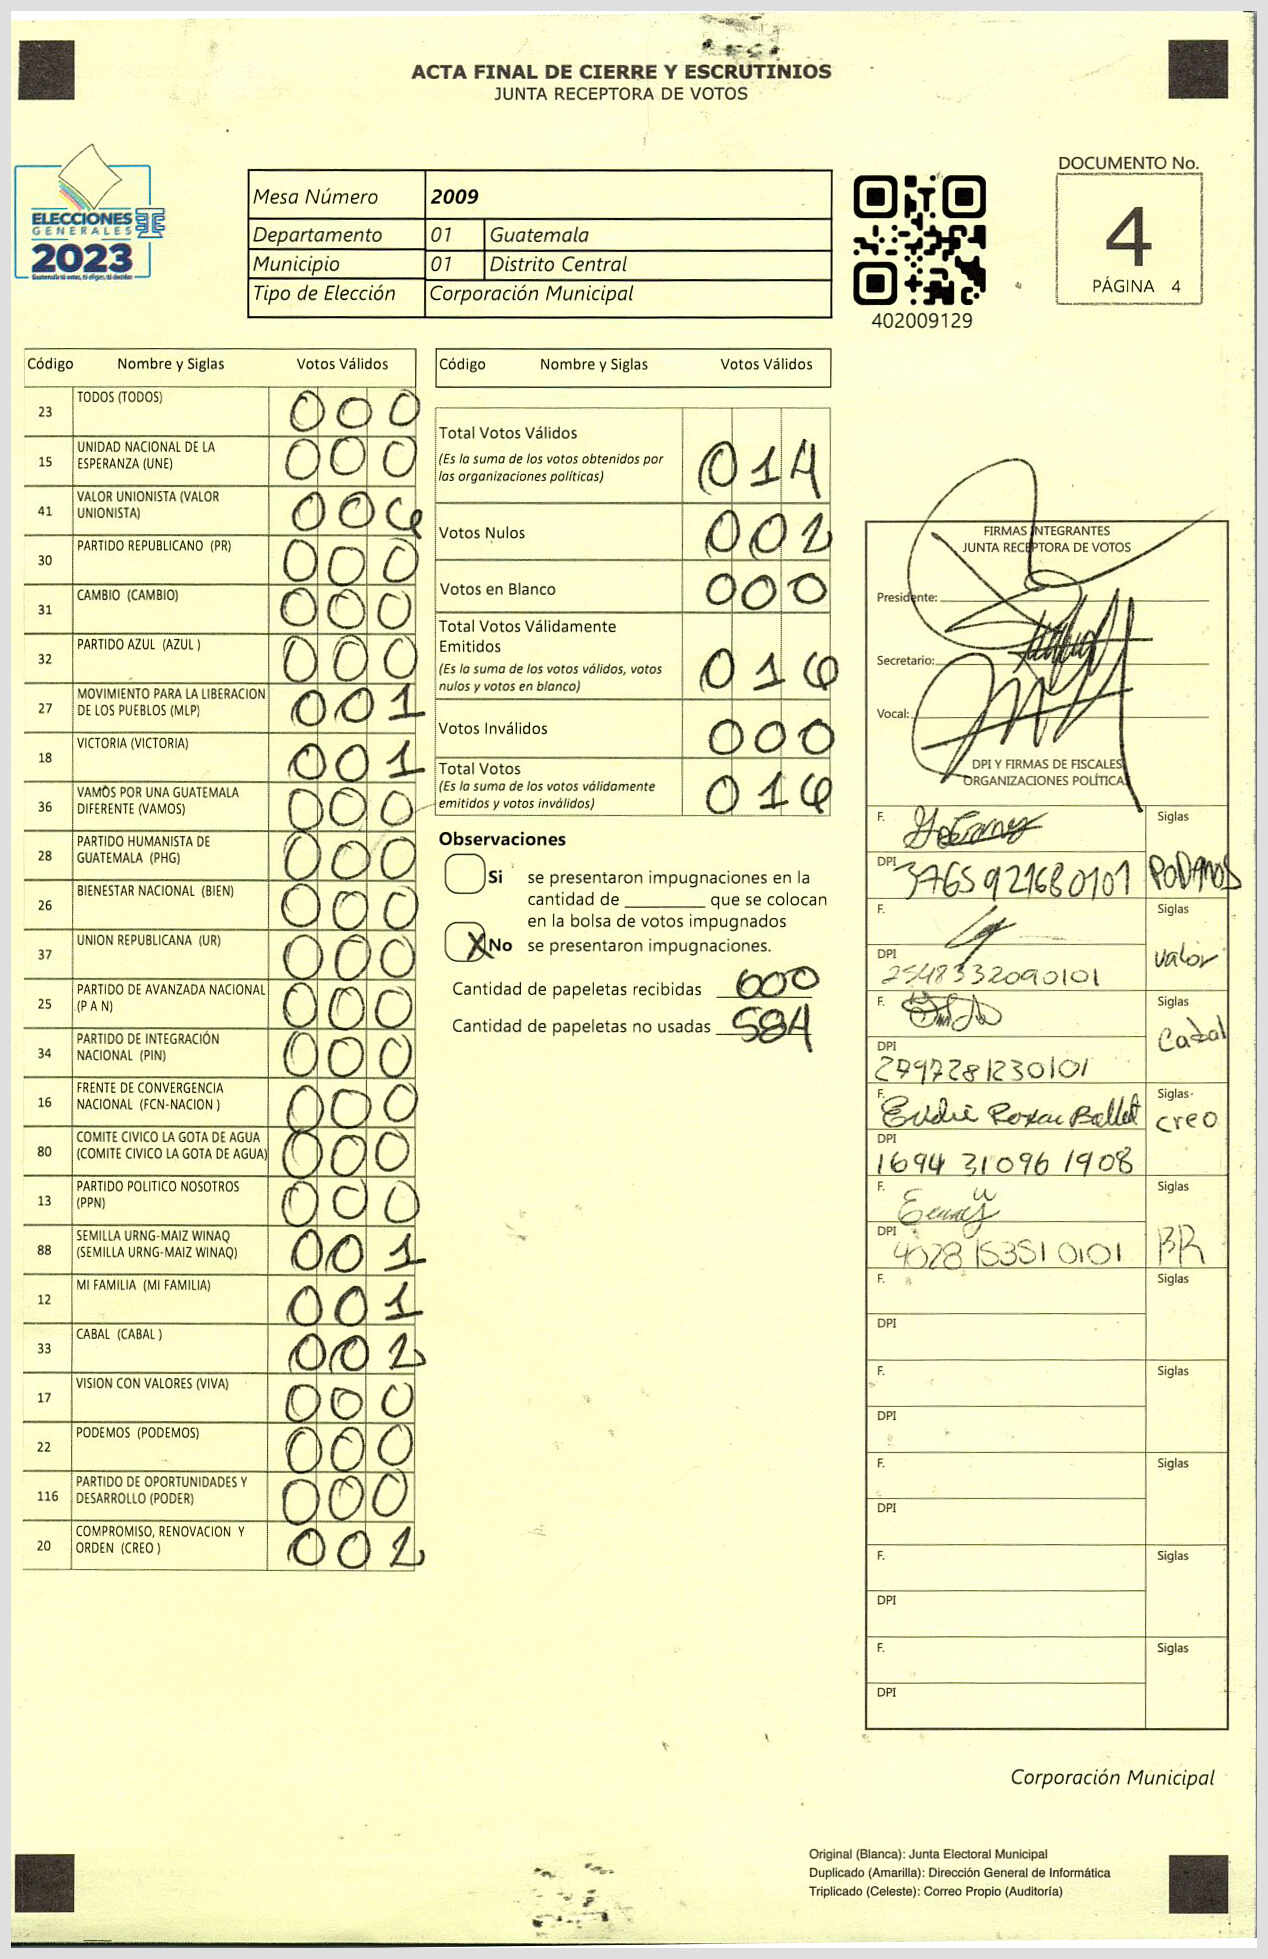 ACTA FINAL DE CIERRE Y ESCRUTINIOS
JUNTA RECEPTORA DE VOTOS
ELECCIONES
GENERALES
2023
Guatemala tú votas, tú eliges, tú decides
Mesa Número 2009
Departamento 01 Guatemala
Municipio 01 Distrito Central
Tipo de Elección Corporación Municipal
402009129
DOCUMENTO No.
4
PÁGINA 4
Código Nombre y Siglas Votos Válidos
23 TODOS (TODOS) 000
15 UNIDAD NACIONAL DE LA ESPERANZA (UNE) 000
41 VALOR UNIONISTA (VALOR UNIONISTA) 006
30 PARTIDO REPUBLICANO (PR) 000
31 CAMBIO (CAMBIO) 000
32 PARTIDO AZUL (AZUL ) 000
27 MOVIMIENTO PARA LA LIBERACION DE LOS PUEBLOS (MLP) 001
18 VICTORIA (VICTORIA) 001
36 VAMOS POR UNA GUATEMALA DIFERENTE (VAMOS) 000
28 PARTIDO HUMANISTA DE GUATEMALA (PHG) 000
26 BIENESTAR NACIONAL (BIEN) 000
37 UNION REPUBLICANA (UR) 000
25 PARTIDO DE AVANZADA NACIONAL (P A N) 000
34 PARTIDO DE INTEGRACIÓN NACIONAL (PIN) 000
16 FRENTE DE CONVERGENCIA NACIONAL (FCN-NACION ) 000
80 COMITE CIVICO LA GOTA DE AGUA (COMITE CIVICO LA GOTA DE AGUA) 000
13 PARTIDO POLITICO NOSOTROS (PPN) 000
88 SEMILLA URNG-MAIZ WINAQ (SEMILLA URNG-MAIZ WINAQ) 001
12 MI FAMILIA (MI FAMILIA) 001
33 CABAL (CABAL ) 002
17 VISION CON VALORES (VIVA) 000
22 PODEMOS (PODEMOS) 000
116 PARTIDO DE OPORTUNIDADES Y DESARROLLO (PODER) 000
20 COMPROMISO, RENOVACION Y ORDEN (CREO ) 002
Código Nombre y Siglas Votos Válidos
Total Votos Válidos 014
(Es la suma de los votos obtenidos por
las organizaciones políticas)
Votos Nulos 002
Votos en Blanco 000
Total Votos Válidamente
Emitidos 016
(Es la suma de los votos válidos, votos
nulos y votos en blanco)
Votos Inválidos 000
Total Votos 016
(Es la suma de los votos válidamente
emitidos y votos inválidos)
Observaciones
Si se presentaron impugnaciones en la
cantidad de ________ que se colocan
en la bolsa de votos impugnados
X No se presentaron impugnaciones.
Cantidad de papeletas recibidas 600
Cantidad de papeletas no usadas 584
FIRMAS INTEGRANTES
JUNTA RECEPTORA DE VOTOS
Presidente:
Secretario:
Vocal:
DPI Y FIRMAS DE FISCALES
ORGANIZACIONES POLÍTICAS
F. Siglas
DPI 3765921680101 PODEMOS
F. Siglas
DPI 2548332090101 valor
F. Siglas
DPI 2797281230101 Cabal
F. Siglas
DPI 1694 31096 1908 creo
F. Siglas
DPI 4028 15351 0101 BR
F. Siglas
DPI
F. Siglas
DPI
F. Siglas
DPI
F. Siglas
DPI
F. Siglas
DPI
Corporación Municipal
Original (Blanca): Junta Electoral Municipal
Duplicado (Amarilla): Dirección General de Informática
Triplicado (Celeste): Correo Propio (Auditoría)